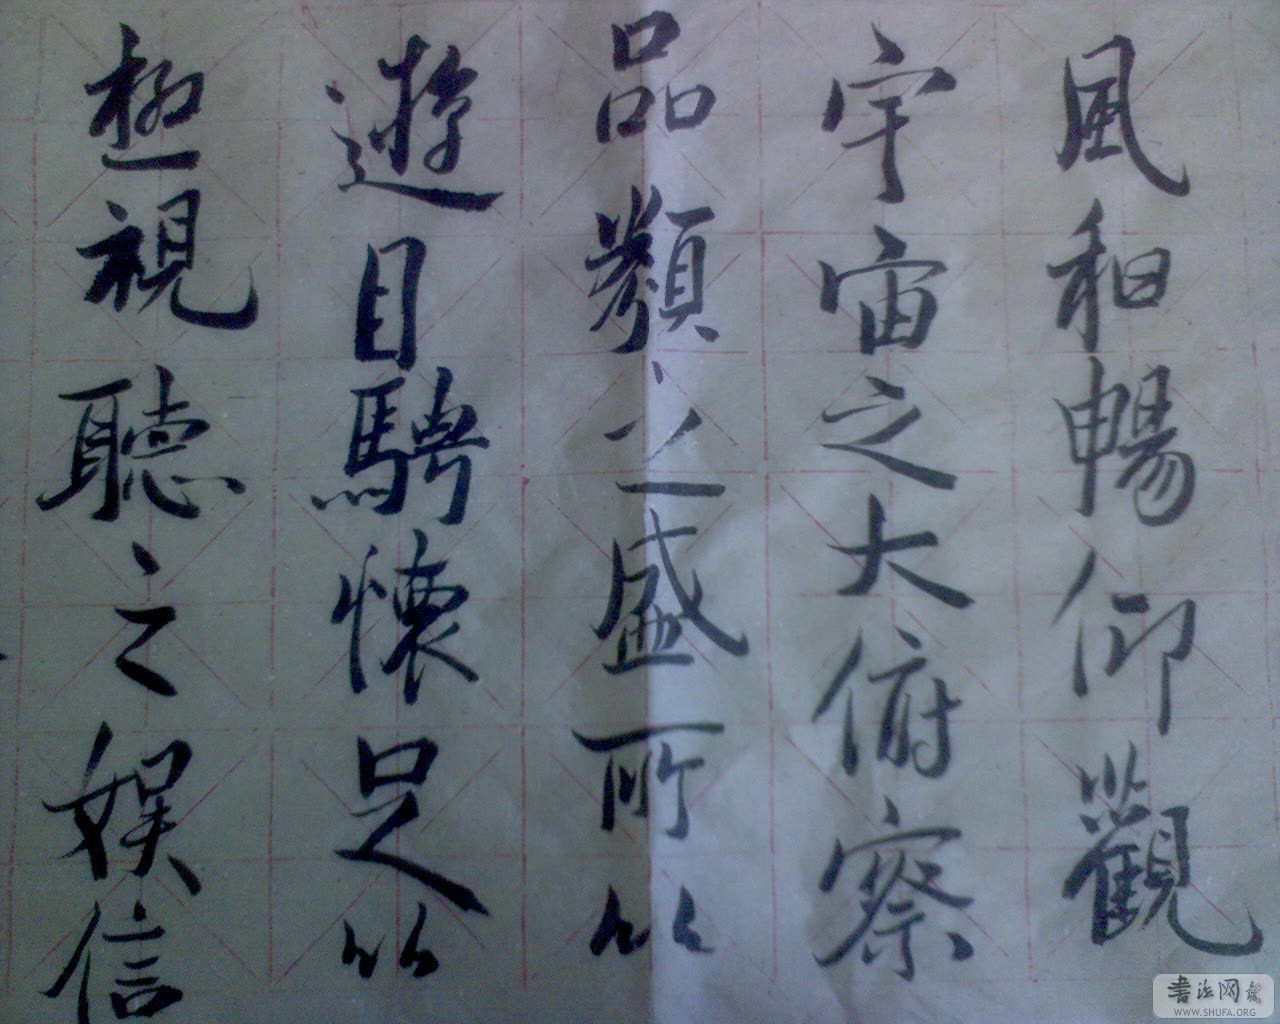 風和暢仰觀
宇宙之大俯察
品類之盛所以
遊目騁懷足以
極視聽之娛信
書法网
WWW.SHUFA.ORG